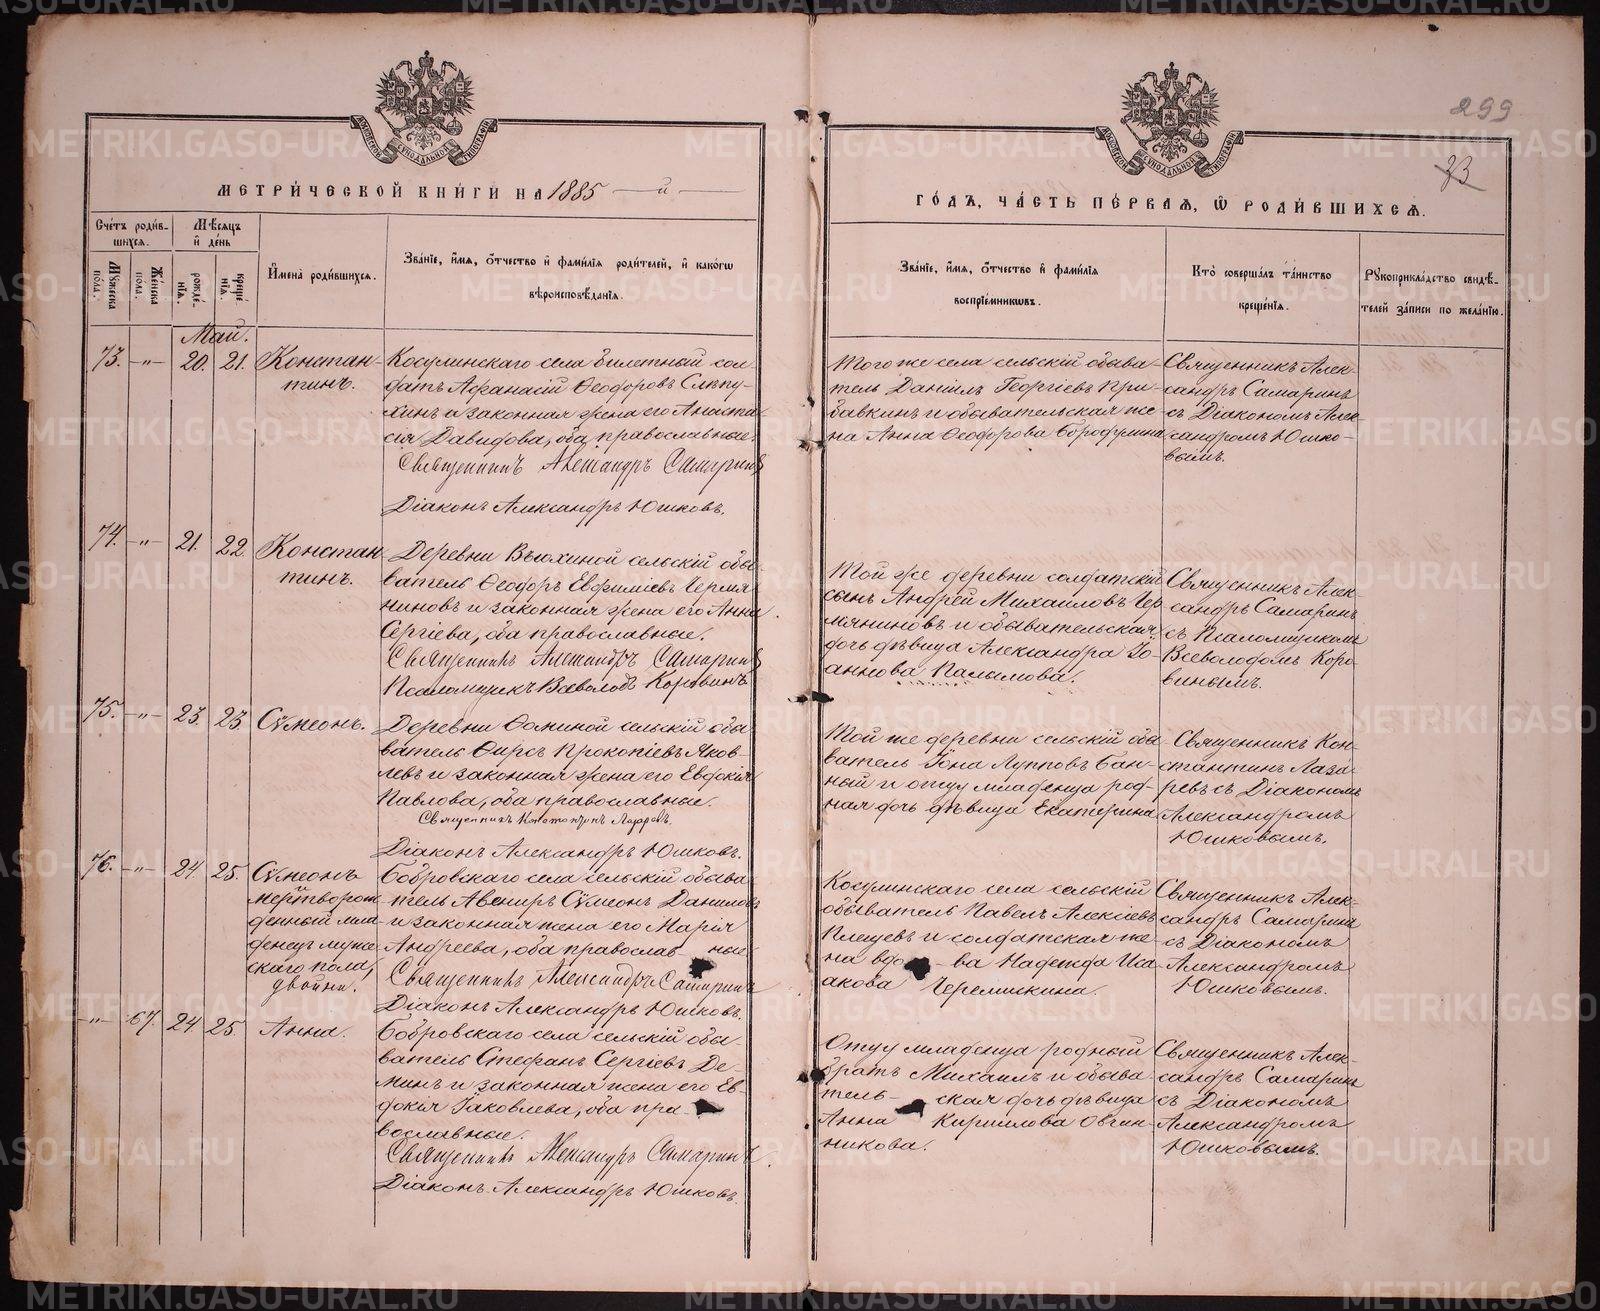 299
23
МЕТРИ́ЧЕСКОЙ КНИ́ГИ НА 1885 — й —
ГО́ДЪ, ЧА́СТЬ ПЕ́РВАЯ, Ѡ РОДИ́ВШИХСЯ.
Сче́тъ роди́в-
шихся.
Мѣ́сяцъ
и҆ де́нь
Му́жеска
пола.
Же́нска
пола.
рожде-
нїѧ.
креще-
нїѧ.
И҆мена̀ роди́вшихся.
Зва́нїе, и҆́мя, о҆́тчество и҆ фами́лїя роди́телей, и҆ како́гѡ
вѣроисповѣ́данїя.
Зва́нїе, и҆́мя, о҆́тчество и҆ фами́лїя
воспрїе́мникѡвъ.
Кто̀ соверша́лъ та́инство
креще́нїя.
Рукоприкла́дство свидѣ́-
телей за́писи по жела́нїю.
Май.
73. -"- 20. 21. Констан-
тинъ.
Косулинскаго села билетный сол-
датъ Афанасій Ѳеодоровъ Слѣпу-
хинъ и законная жена его Анаста-
сія Давидова, оба православные.
Священникъ Александръ Самаринъ
Діаконъ Александръ Юшковъ.
Того же села сельскій обыва-
тель Даніилъ Георгіевъ При-
бавкинъ и обывательская же-
на Анна Ѳеодорова Бородулина
Священникъ Алек-
сандръ Самаринъ
съ Діакономъ Алек-
сандромъ Юшко-
вымъ.
74. -"- 21. 22. Констан-
тинъ.
Деревни Вьюхиной сельскій обы-
ватель Ѳеодоръ Евфиміевъ Чермя-
ниновъ и законная жена его Анна
Сергіева, оба православные.
Священникъ Александръ Самаринъ
Псаломщикъ Всеволодъ Коровинъ
Той же деревни солдатскій
сынъ Андрей Михаиловъ Чер-
мяниновъ и обывательская
дочь дѣвица Александра Іо-
аннова Палымова.
Священникъ Алек-
сандръ Самаринъ
съ Псаломщикомъ
Всеволодомъ Коро-
винымъ.
75. -"- 23. 23. Сѵмеонъ.
Деревни Ѳоминой сельскій обы-
ватель Ѳирсъ Прокопіевъ Яков-
левъ и законная жена его Евдокія
Павлова, оба православные.
Священникъ Константинъ Лазаревъ.
Діаконъ Александръ Юшковъ.
Той же деревни сельскій обы-
ватель Іона Лупповъ Бан-
ный и отцу младенца род-
ная дочь дѣвица Екатерина
Священникъ Кон-
стантинъ Лаза-
ревъ съ Діакономъ
Александромъ
Юшковымъ.
76. -"- 24. 25. Сѵмеонъ
мертворож
денный мла-
денецъ муже-
скаго пола,
двойни.
Бобровскаго села сельскій обыва-
тель Авениръ Сѵмеонъ Даниловъ
и законная жена его Марія
Андреева, оба православ- ные
Священникъ Александръ Самаринъ
Діаконъ Александръ Юшковъ.
Косулинскаго села сельскій
обыватель Павелъ Алексіевъ
Плещевъ и солдатская же-
на вдо- ва Надежда Иса-
акова Черемискина.
Священникъ Алек-
сандръ Самаринъ
съ Діакономъ
Александромъ
Юшковымъ.
-"- 67. 24. 25. Анна.
Бобровскаго села сельскій обы-
ватель Стефанъ Сергіевъ Де-
минъ и законная жена его Ев-
докія Іаковлева, оба пра-
вославные.
Священникъ Александръ Самаринъ
Діаконъ Александръ Юшковъ.
Отцу младенца родный
братъ Михаилъ и обыва-
тель- ская дочь дѣвица
Анна Кириллова Овчин-
никова.
Священникъ Алек-
сандръ Самаринъ
съ Діакономъ
Александромъ
Юшковымъ.